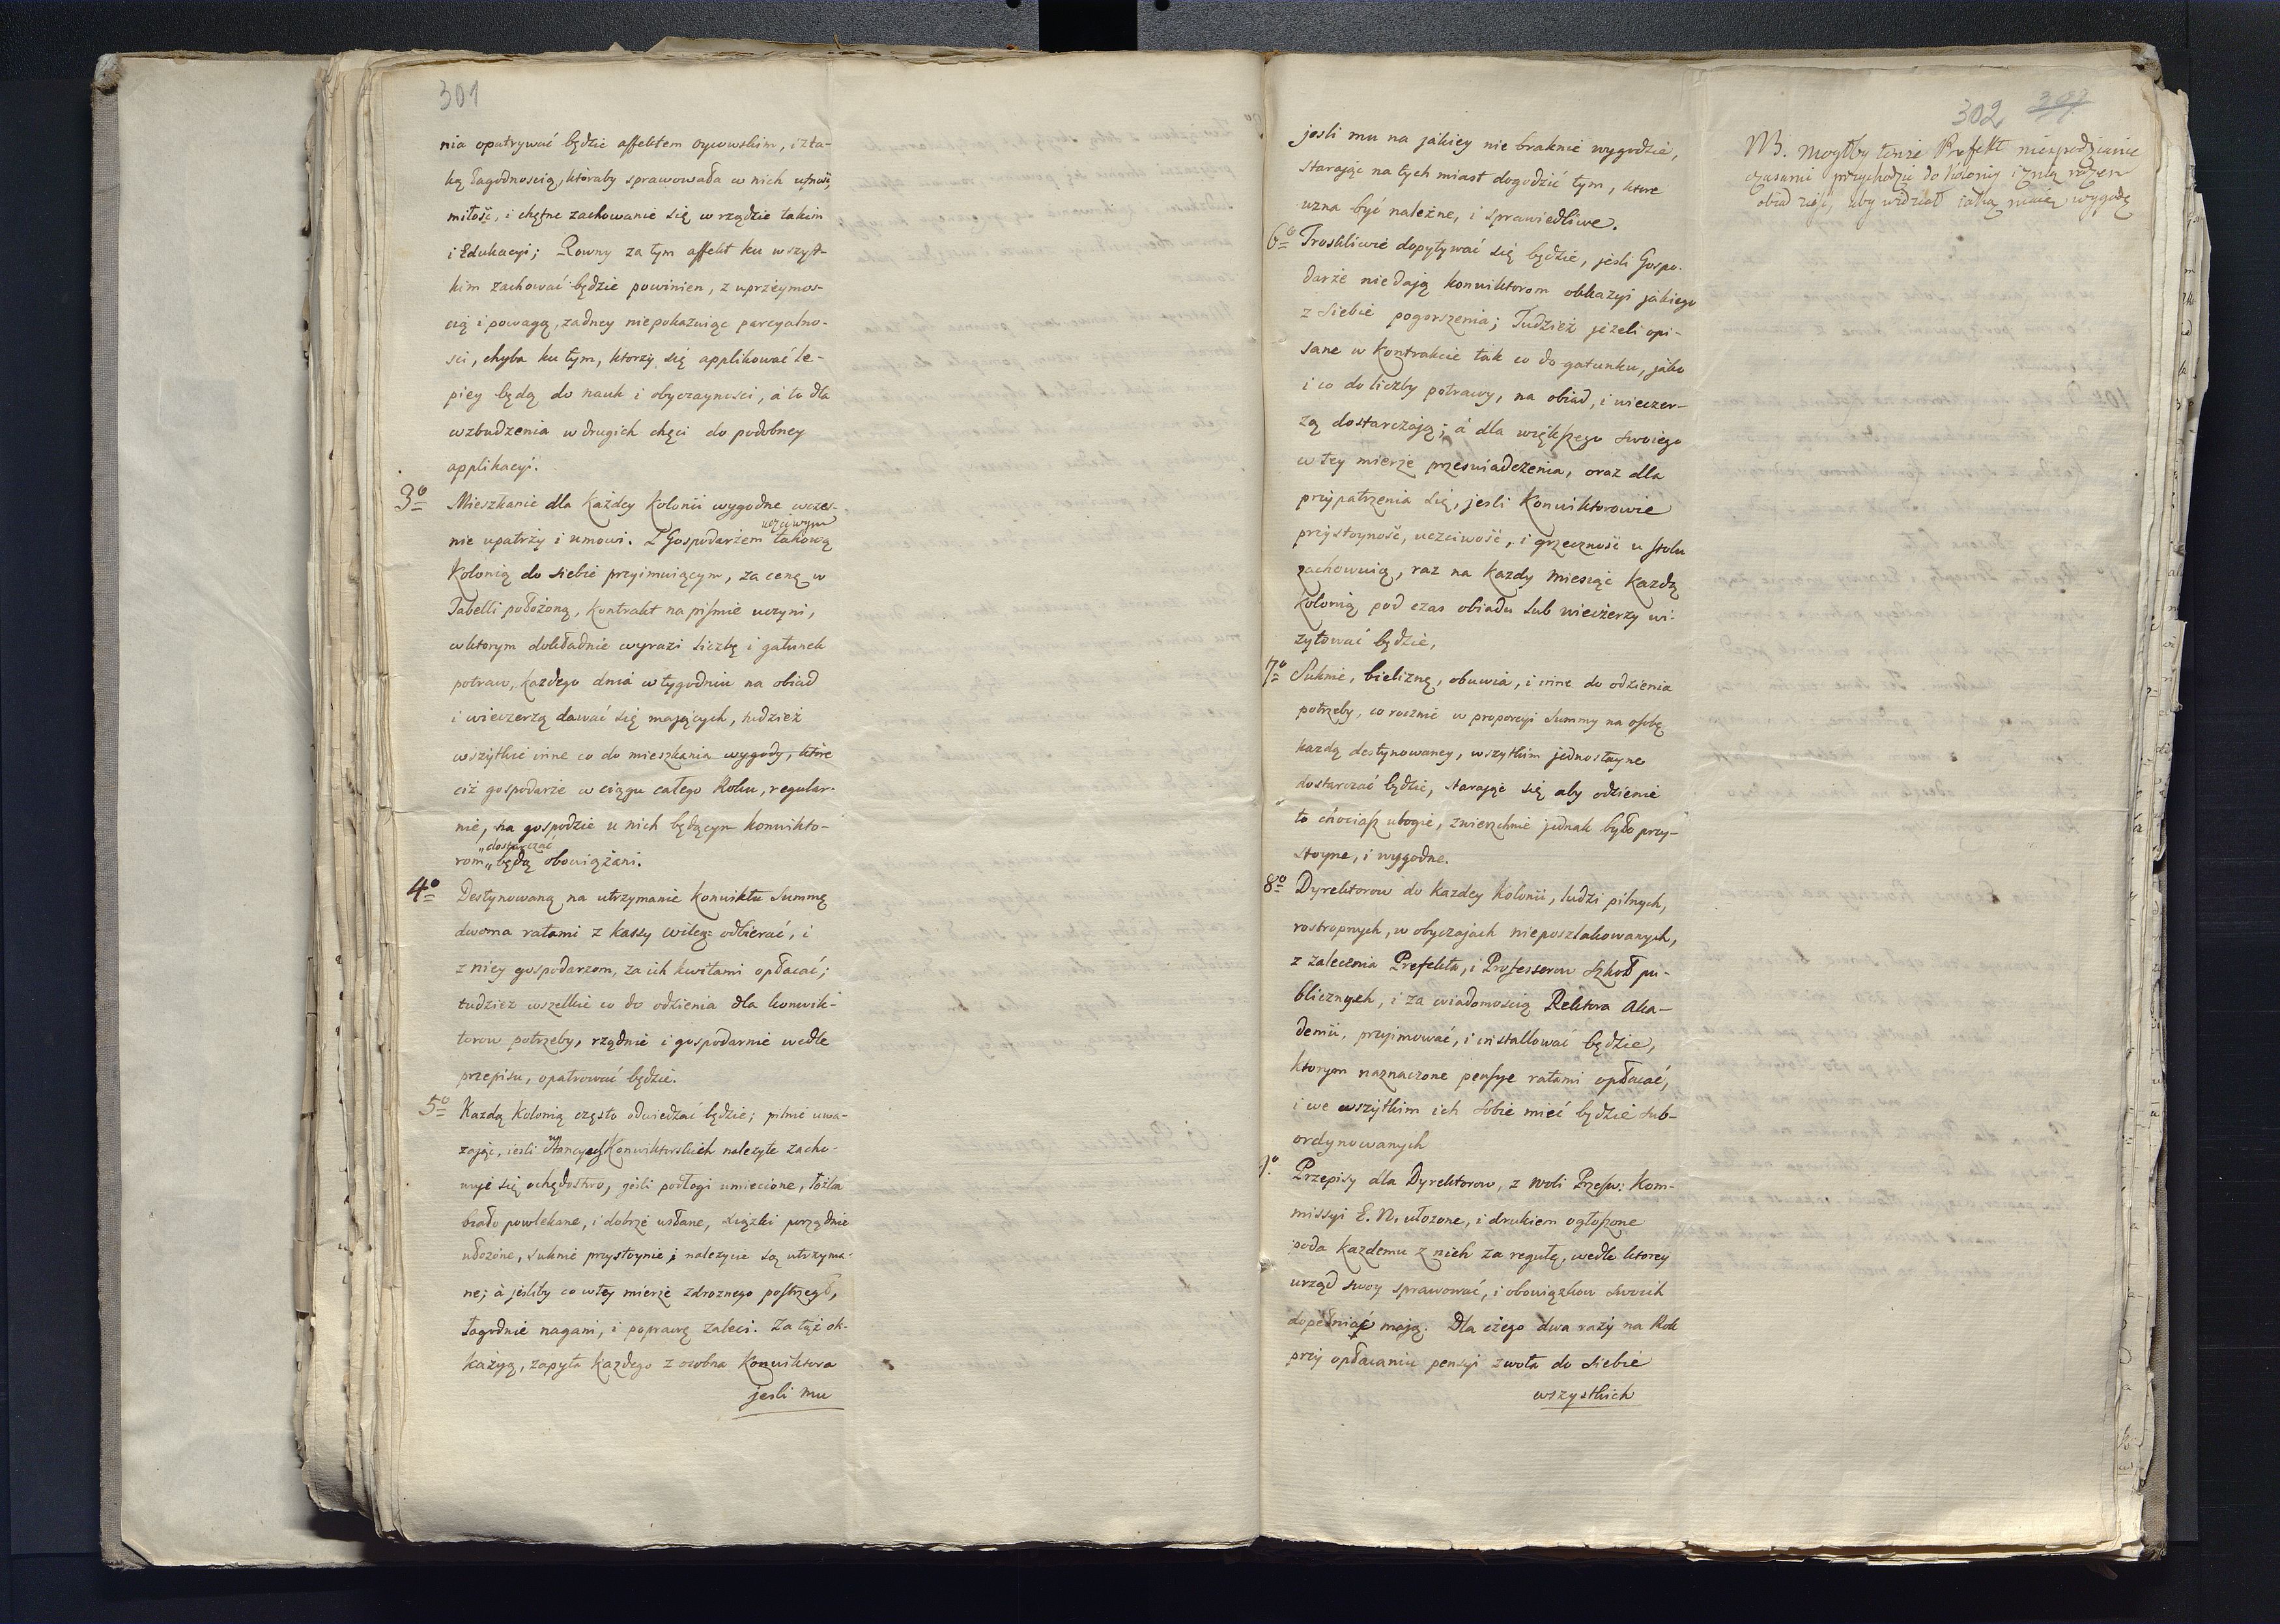 301
nia opatrywać będzie affektem oycowskim, i z ta-
ką łagodnoscią, któraby sprawowała w nich ufność,
miłość, i chętne zachowanie się w rządzie takim
i Edukacyi; Rowny za tym affekt ku wszyst-
kim zachować będzie powinien, z uprzeymos-
cią i powagą, zadney niepokazuiąc parcyalno-
sci, chyba ku tym, ktorzy się applikować le-
piey będą do nauk i obyczayności, á to dla
wzbudzenia w drugich chęci do podobney
applikacyi.
3º Mieszkanie dla każdey Kolonii wygodne wczes-
nie upatrzy i umowi. Z Gospodarzem uczciwym takową
Kolonią do siebie przyimuiącym, za cenę w
Tabelli położoną, Kontrakt na pismie uczyni,
w ktorym dokładnie wyrazi liczbę i gatunek
potraw, każdego dnia w tygodniu na obiad
i wieczerzą dawać się maiących, tudzież
wszytkie inne co do mieszkania wygody, ktore
ciż gospodarze w ciągu całego Roku, regular-
nie, na gospodzie u nich będącym konwikto-
rom „dostarczać„ będą obowiązani.
4º Destynowaną na utrzymanie Konwiktu Summę
dwoma ratami z kassy odbierać, i
z niey gospodarzom, za ich kwitami opłacać;
tudzież wszelkie co do odzienia dla konwik-
torow potrzeby, rządnie i gospodarnie wedle
przepisu, opatrować będzie.
5º Kazdą Kolonią często odwiedzać będzie; pilnie uwa-
zając, iesli w Stancyach Konwiktorskich nalezyte zacho-
wuje się ochędostwo, jesli podłogi umiecione, łóżka
biało powlekane, i dobrze usłane, xiązki porządnie
ułożone, suknie przystoynie i należycie są utrzyma-
ne; à jesliby co w tey mierze zdroznego postrzegł,
łagodnie nagani, i poprawę zaleci. Za tąż ok-
kazyą, zapyta każdego z osobna Konwiktora
jesli mu
302 307
jesli mu na jakiey nie braknie wygodzie,
starając na tych miast dogodzić tym, ktore
uzna być należne, i sprawiedliwe.
6º Troskliwie dopytywać się będzie, jesli Gospo-
darze nie dają konwiktorom okkazyi jakiego
z siebie pogorszenia; Tudzież jeżeli opi-
sane w Kontrakcie tak co do gatunku, jako
i co do liczby potrawy, na obiad, i wieczer-
zą dostarczają; á dla większego swoiego
w tey mierze przeswiadczenia, oraz dla
przypatrzenia się, jesli Konwiktorowie
przystoyność, uczciwość, i grzeczność u stołu
zachowuią, raz na każdy miesiąc każdą
kolonią pod czas obiadu lub wieczerzy wi-
zytować będzie,
7º Suknie, bieliznę, obuwia, i inne do odzienia
potrzeby, co rocznie w proporcyi Summy na osobę
każdą destynowaney, wszytkim jednostayne
dostarczać będzie, starając się aby odzienie
to chociasz ubogie, zwierzchnie jednak było przy-
stoyne, i wygodne.
8º Dyrektorow do każdey Kolonii, ludzi pilnych,
rostropnych, w obyczajach nieposzlakowanych,
z zalecenia Prefekta, i Professorow Szkoł pu-
blicznych, i za wiadomoscią Rektora Aka-
demii, przyimować, i installować będzie,
ktorym naznaczone pensye ratami opłacać,
i we wszytkim ich sobie mieć będzie sub-
ordynowanych
9º Przepisy dla Dyrektorow, z woli Przesw: Kom-
missyi E. N. ułożone, i drukiem ogłoszone
poda każdemu z nich za regułę, wedle ktorey
urząd swoy sprawować, i obowiązkow swoich
dopełniać mają. Dla czego dwa razy na Rok
przy opłacaniu pensyi zwoła do siebie
wszystkich
NB. Mogłby tenże Prefekt niespodzianie
czasami przychodzić do Kolonii i z nią razem
obiad zieść, aby widział iaką maią wygodę